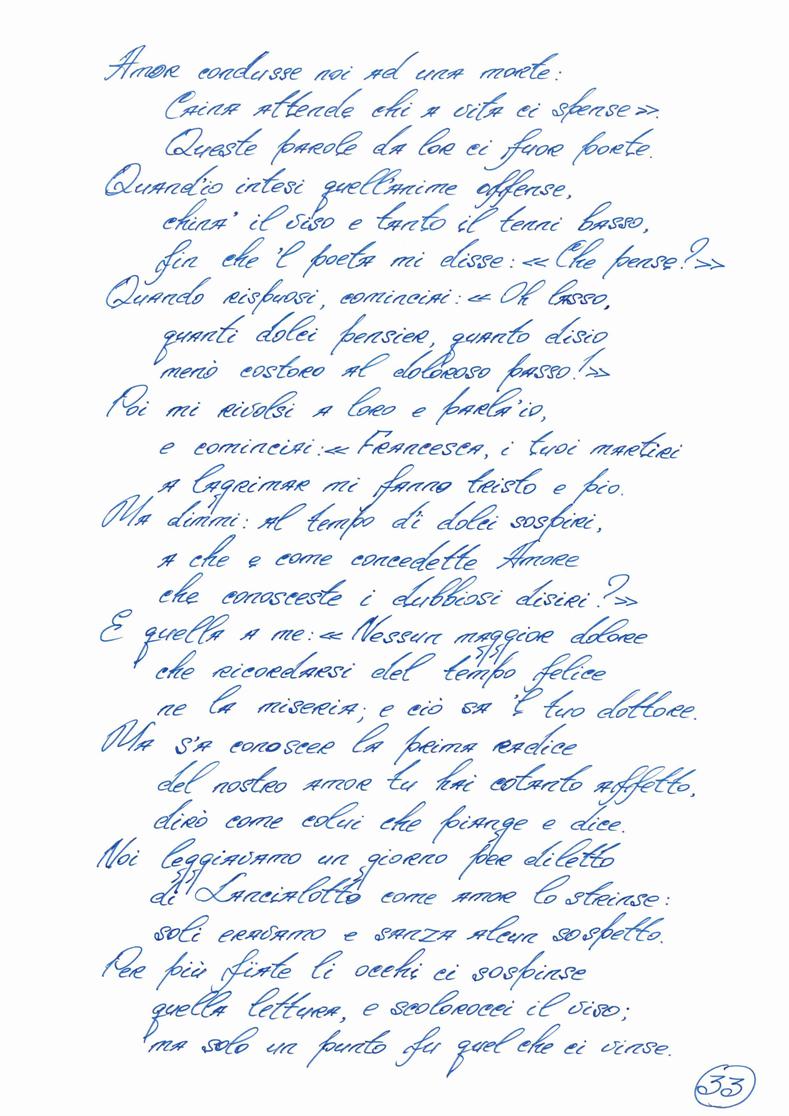 Amor condusse noi ad una morte:
Caina attende chi a vita ci spense».
Queste parole da lor ci fuor porte.
Quand'io intesi quell'anime offense,
china' il viso e tanto il tenni basso,
fin che 'l poeta mi disse: «Che pense?»
Quando rispuosi, cominciai: «Oh lasso,
quanti dolci pensier, quanto disio
menò costoro al doloroso passo!»
Poi mi rivolsi a loro e parla'io,
e cominciai: «Francesca, i tuoi martiri
a lagrimar mi fanno tristo e pio.
Ma dimmi: al tempo d'i dolci sospiri,
a che e come concedette Amore
che conosceste i dubbiosi disiri?»
E quella a me: «Nessun maggior dolore
che ricordarsi del tempo felice
ne la miseria; e ciò sa 'l tuo dottore.
Ma s'a conoscer la prima radice
del nostro amor tu hai cotanto affetto,
dirò come colui che piange e dice.
Noi leggiavamo un giorno per diletto
di Lancialotto come amor lo strinse:
soli eravamo e sanza alcun sospetto.
Per più fïate li occhi ci sospinse
quella lettura, e scolorocci il viso;
ma solo un punto fu quel che ci vinse.
33